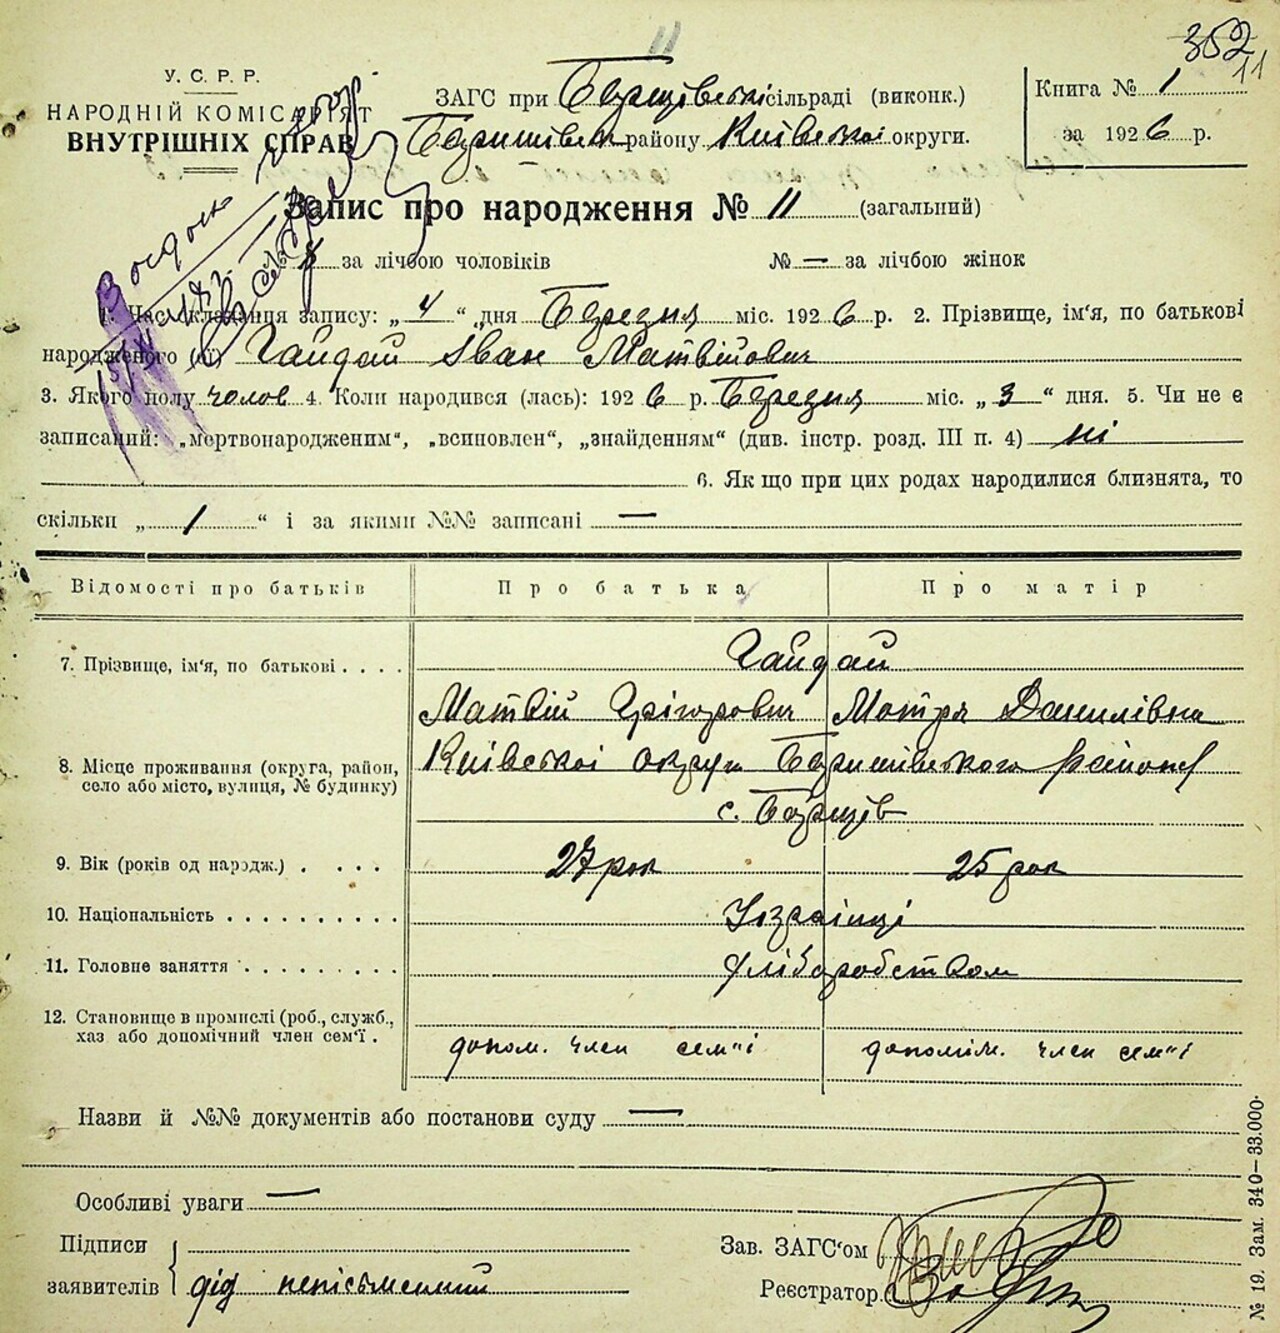 352
11
11
У. С. Р. Р.
НАРОДНІЙ КОМІСАРІЯТ
ВНУТРІШНІХ СПРАВ
ЗАГС при Борщівській сільраді (виконк.)
району Київської округи.
Книга № 1
за 1926 р.
Запис про народження № 11 (загальний)
№ 8 за лічбою чоловіків № — за лічбою жінок
1. Час складання запису: „ 4 “ дня Березня міс. 1926 р. 2. Прізвище, ім'я, по батькові
народженого (ої) Гайдай Іван Матвійович
3. Якого полу чолов 4. Коли народився (лась): 1926 р. Березня міс. „ 3 “ дня. 5. Чи не є
записаний: „мертвонародженим“, „всиновлен“, „знайденням“ (див. інстр. розд. III п. 4) ні
6. Як що при цих родах народилися близнята, то
скільки „ 1 “ і за якими №№ записані —
Відомості про батьків Про батька Про матір
7. Прізвище, ім'я, по батькові . . . . Гайдай
Матвій Грігорович Мотря Данилівна
8. Місце проживання (округа, район, село або місто, вулиця, № будинку) Київської округи Баришівського району
с. Борщів
9. Вік (років од народж.) . . . . 27 рок 25 рок
10. Національність . . . . . . . . . . Українці
11. Головне заняття . . . . . . . . . хліборобством
12. Становище в промислі (роб., служб.,
хаз або допомічний член сем'ї . допом. член сем"ї допоміж. член сем"ї
Назви й №№ документів або постанови суду —
Особливі уваги —
Підписи
заявителів дід неписьменний
Зав. ЗАГС'ом
Реєстратор
№ 19. Зам. 340—33.000.